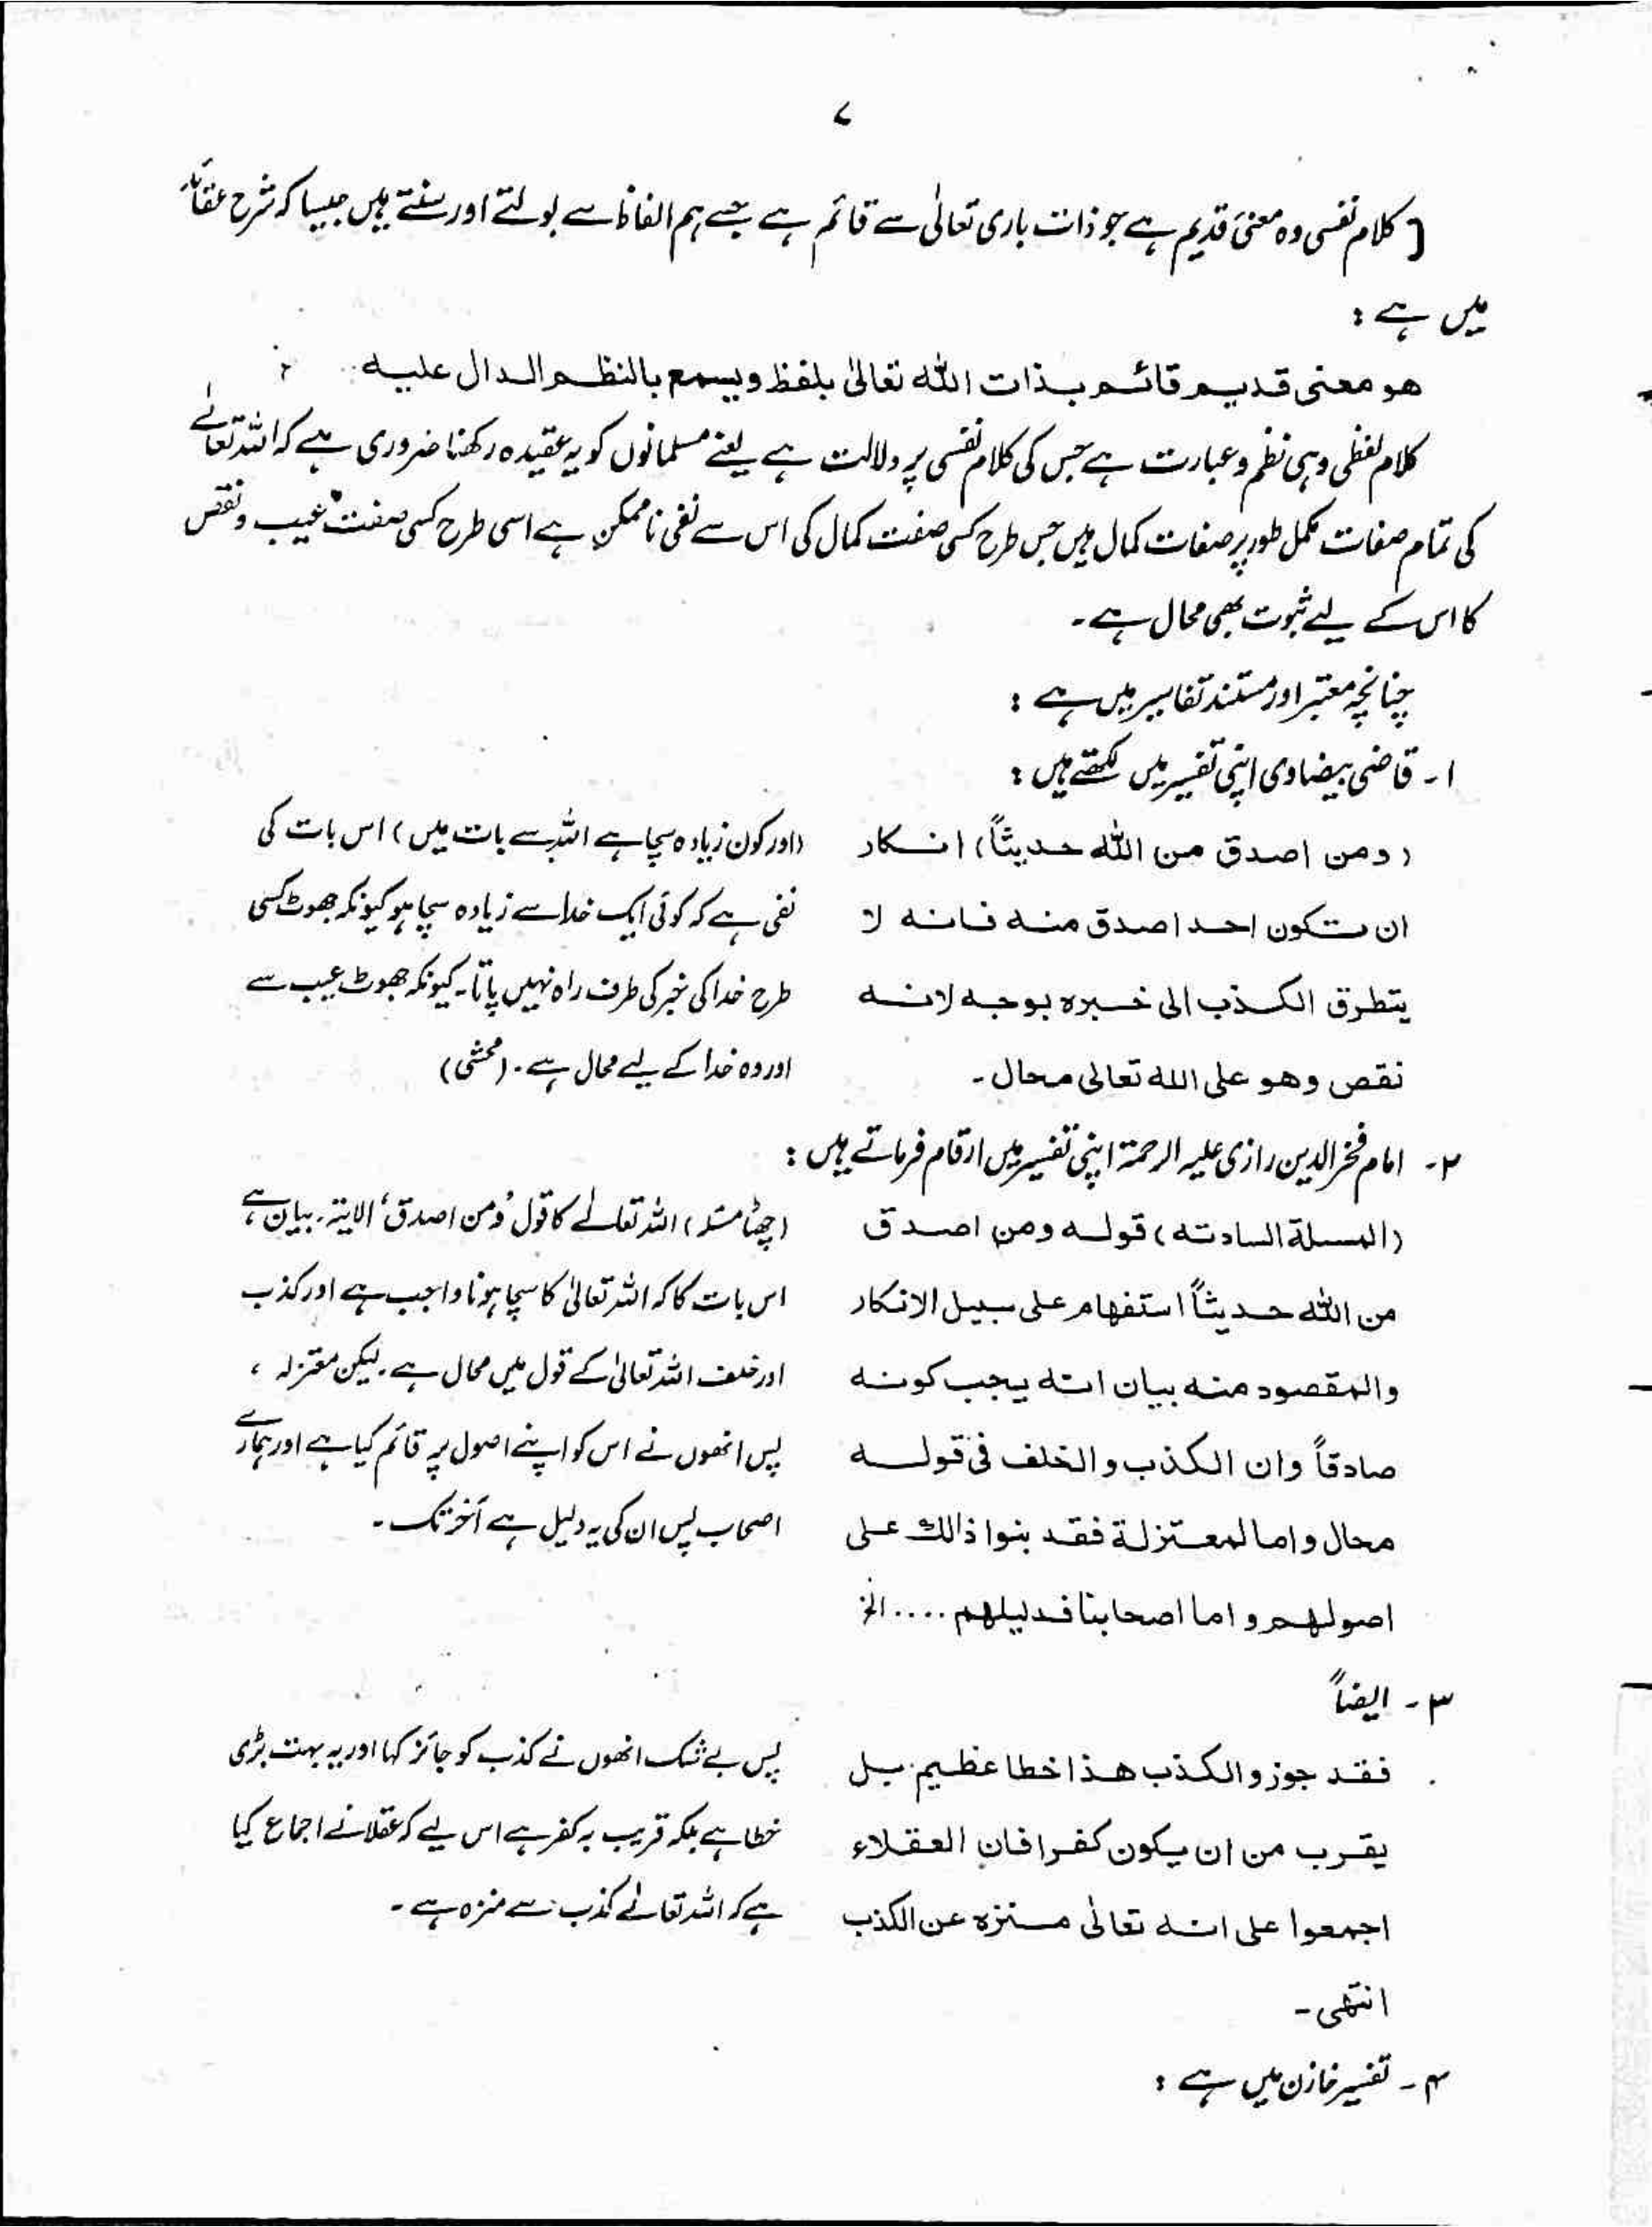 ۷
[ کلام نفسی وہ معنیٰ قدیم ہے جو ذات باری تعالیٰ سے قائم ہے جسے ہم الفاظ سے بولتے اور سنتے ہیں جیسا کہ شرح عقائد
میں ہے :
هو معنی قدیم قائم بذات اللّٰه تعالیٰ بلفظ ویسمع بالنظم الدال علیه
کلام لفظی وہی نظم و عبارت ہے جس کی کلام نفسی پر دلالت ہے یعنے مسلمانوں کو یہ عقیدہ رکھنا ضروری ہے کہ اللہ تعالےٰ
کی تمام صفات مکمل طور پر صفات کمال ہیں جس طرح کسی صفت کمال کی اس سے نفی ناممکن ہے اسی طرح کسی صفت عیب و نقص
کا اس کے لیے ثبوت بھی محال ہے ۔
چنانچہ معتبر اور مستند تفاسیر میں ہے :
۱۔ قاضی بیضاوی اپنی تفسیر میں لکھتے ہیں :
(ومن اصدق من اللّٰه حدیثاً) انکار
ان تکون احد اصدق منه فانه لا
یتطرق الکذب الی خبره بوجه لانه
نقص وهو علی الله تعالی محال ۔
(اور کون زیادہ سچا ہے اللہ سے بات میں) اس بات کی
نفی ہے کہ کوئی ایک خدا سے زیادہ سچا ہو کیونکہ جھوٹ کسی
طرح خدا کی خبر کی طرف راہ نہیں پاتا۔ کیونکہ جھوٹ عیب ہے
اور وہ خدا کے لیے محال ہے ۔ (محشی)
۲۔ امام فخر الدین رازی علیہ الرحمۃ اپنی تفسیر میں ارقام فرماتے ہیں :
(المسلة السادته) قوله ومن اصدق
من اللّٰه حدیثاً استفهام علی سبیل الانکار
والمقصود منه بیان انه یجب کونه
صادقاً وان الکذب والخلف فی قوله
محال واما المعتزلة فقد بنوا ذالك علی
اصولهم واما اصحابنا فدلیلهم .... الخ
(چھٹا مسئلہ) اللہ تعالےٰ کا قول 'ومن اصدق' الایتہ۔ بیان ہے ،
اس بات کا کہ اللہ تعالیٰ کا سچا ہونا واجب ہے اور کذب
اور خلف اللہ تعالیٰ کے قول میں محال ہے ۔ لیکن معتزلہ ،
پس انھوں نے اس کو اپنے اصول پر قائم کیا ہے اور ہمارے
اصحاب پس ان کی یہ دلیل ہے آخر تک ۔
۳۔ ایضاً
فقد جوز والکذب هذا خطا عظیم بل
یقرب من ان یکون کفرا فان العقلاء
اجمعوا علی انه تعالیٰ منزه عن الکذب
انتهی ۔
پس بے شک انھوں نے کذب کو جائز کہا اور یہ بہت بڑی
خطا ہے بلکہ قریب بہ کفر ہے اس لیے کہ عقلا نے اجماع کیا
ہے کہ اللہ تعالےٰ کذب سے منزہ ہے ۔
۴۔ تفسیر خازن میں ہے :